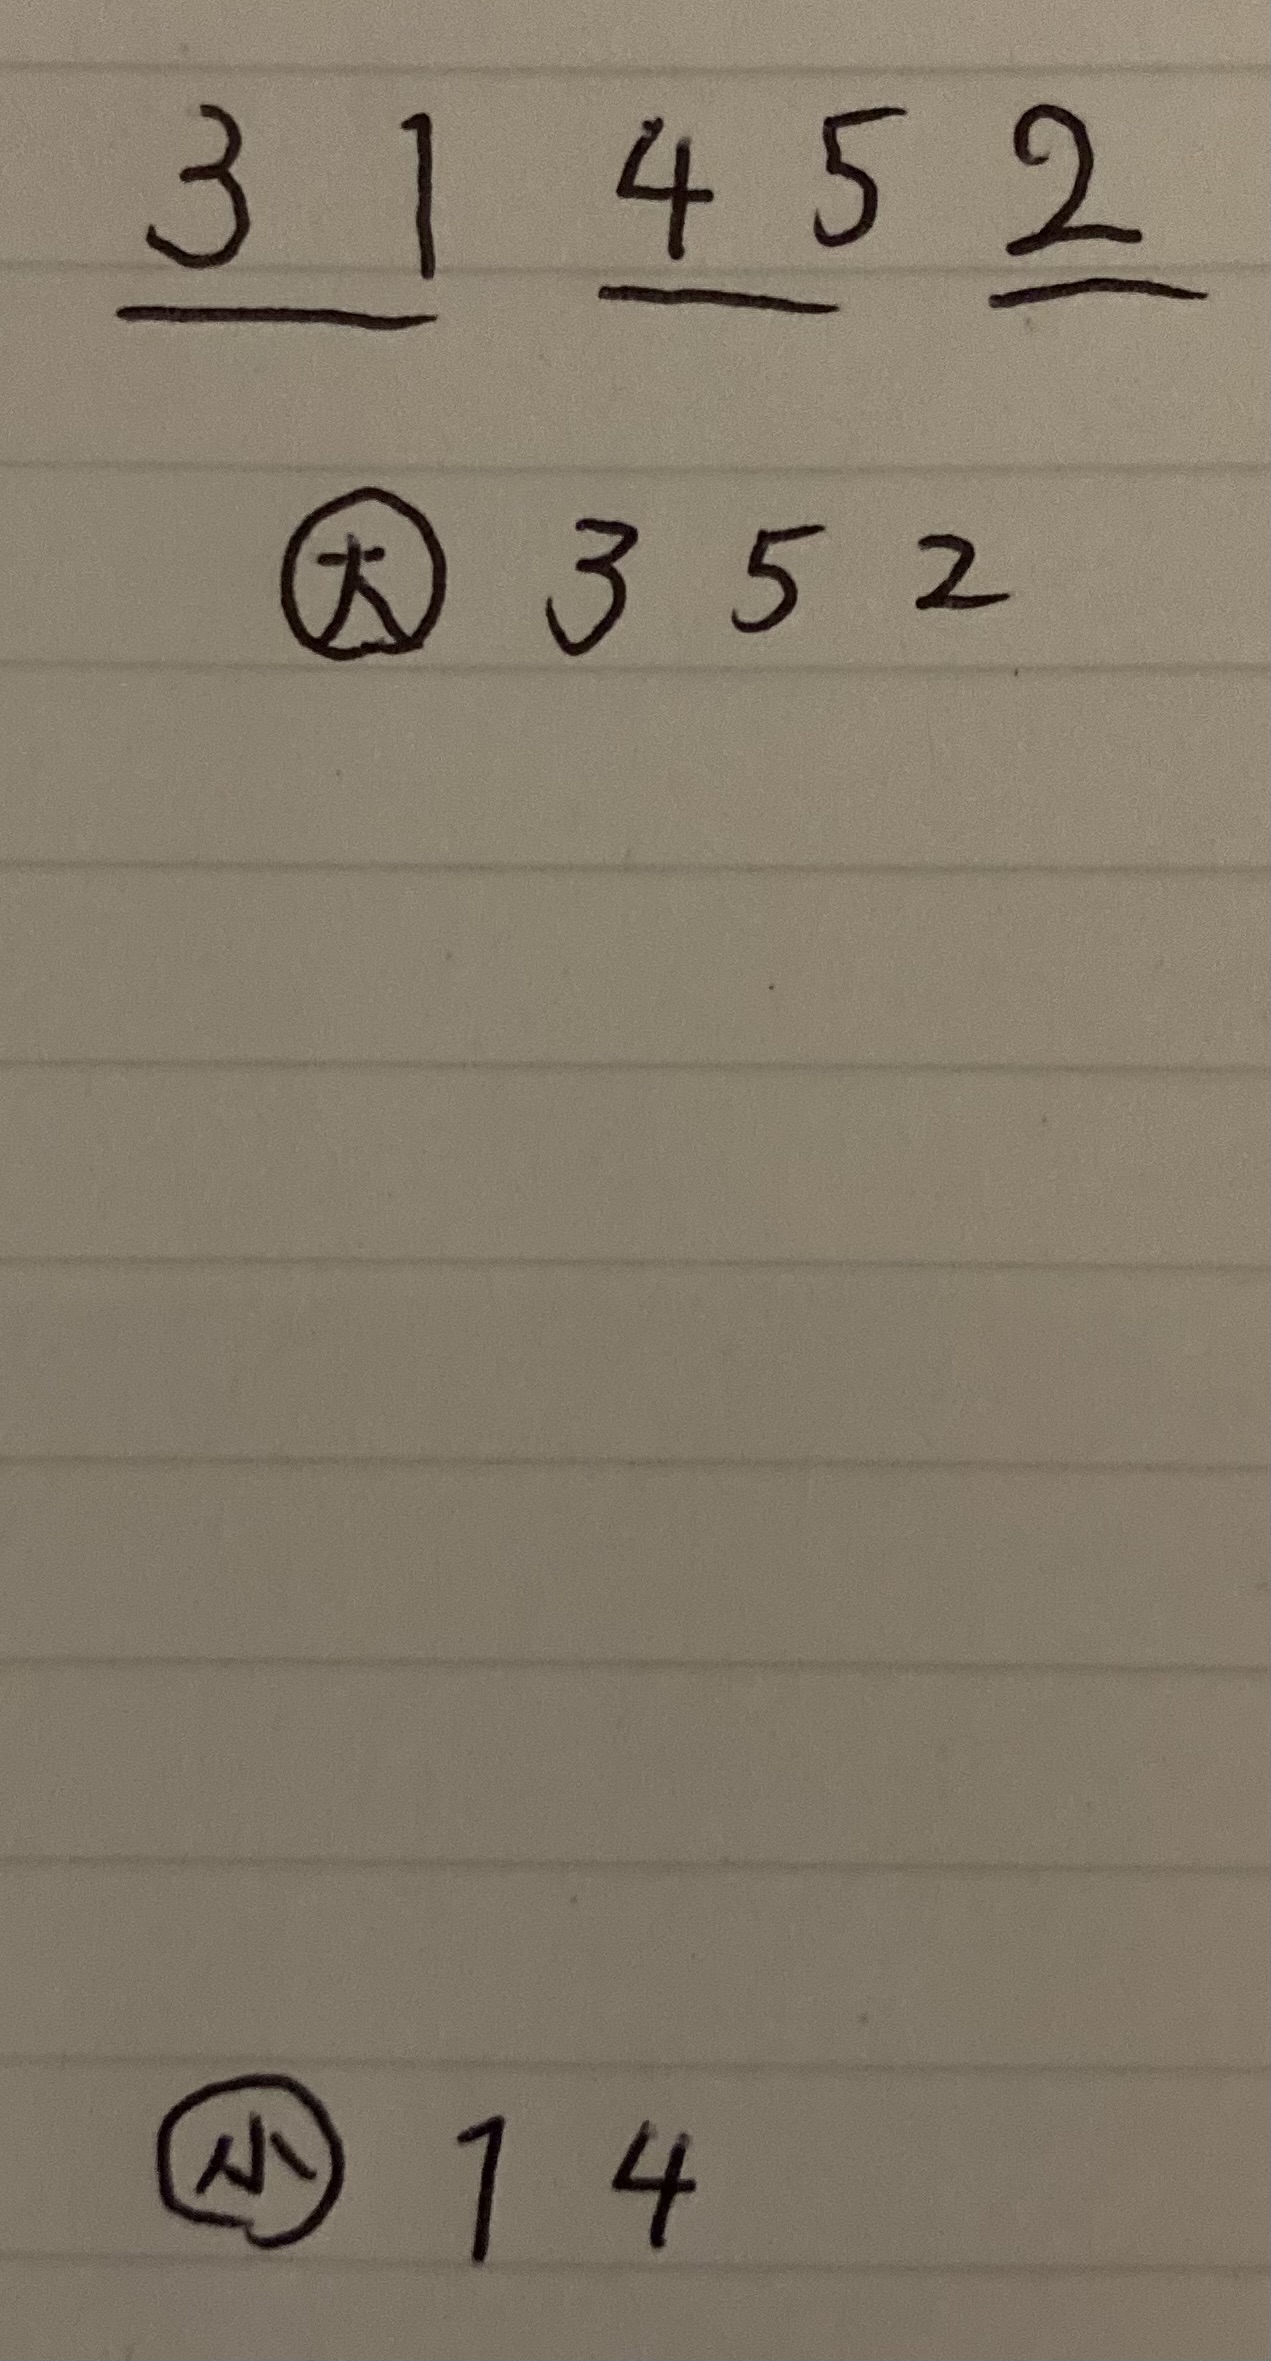 3 1 4 5 2
大 3 5 2
小 1 4